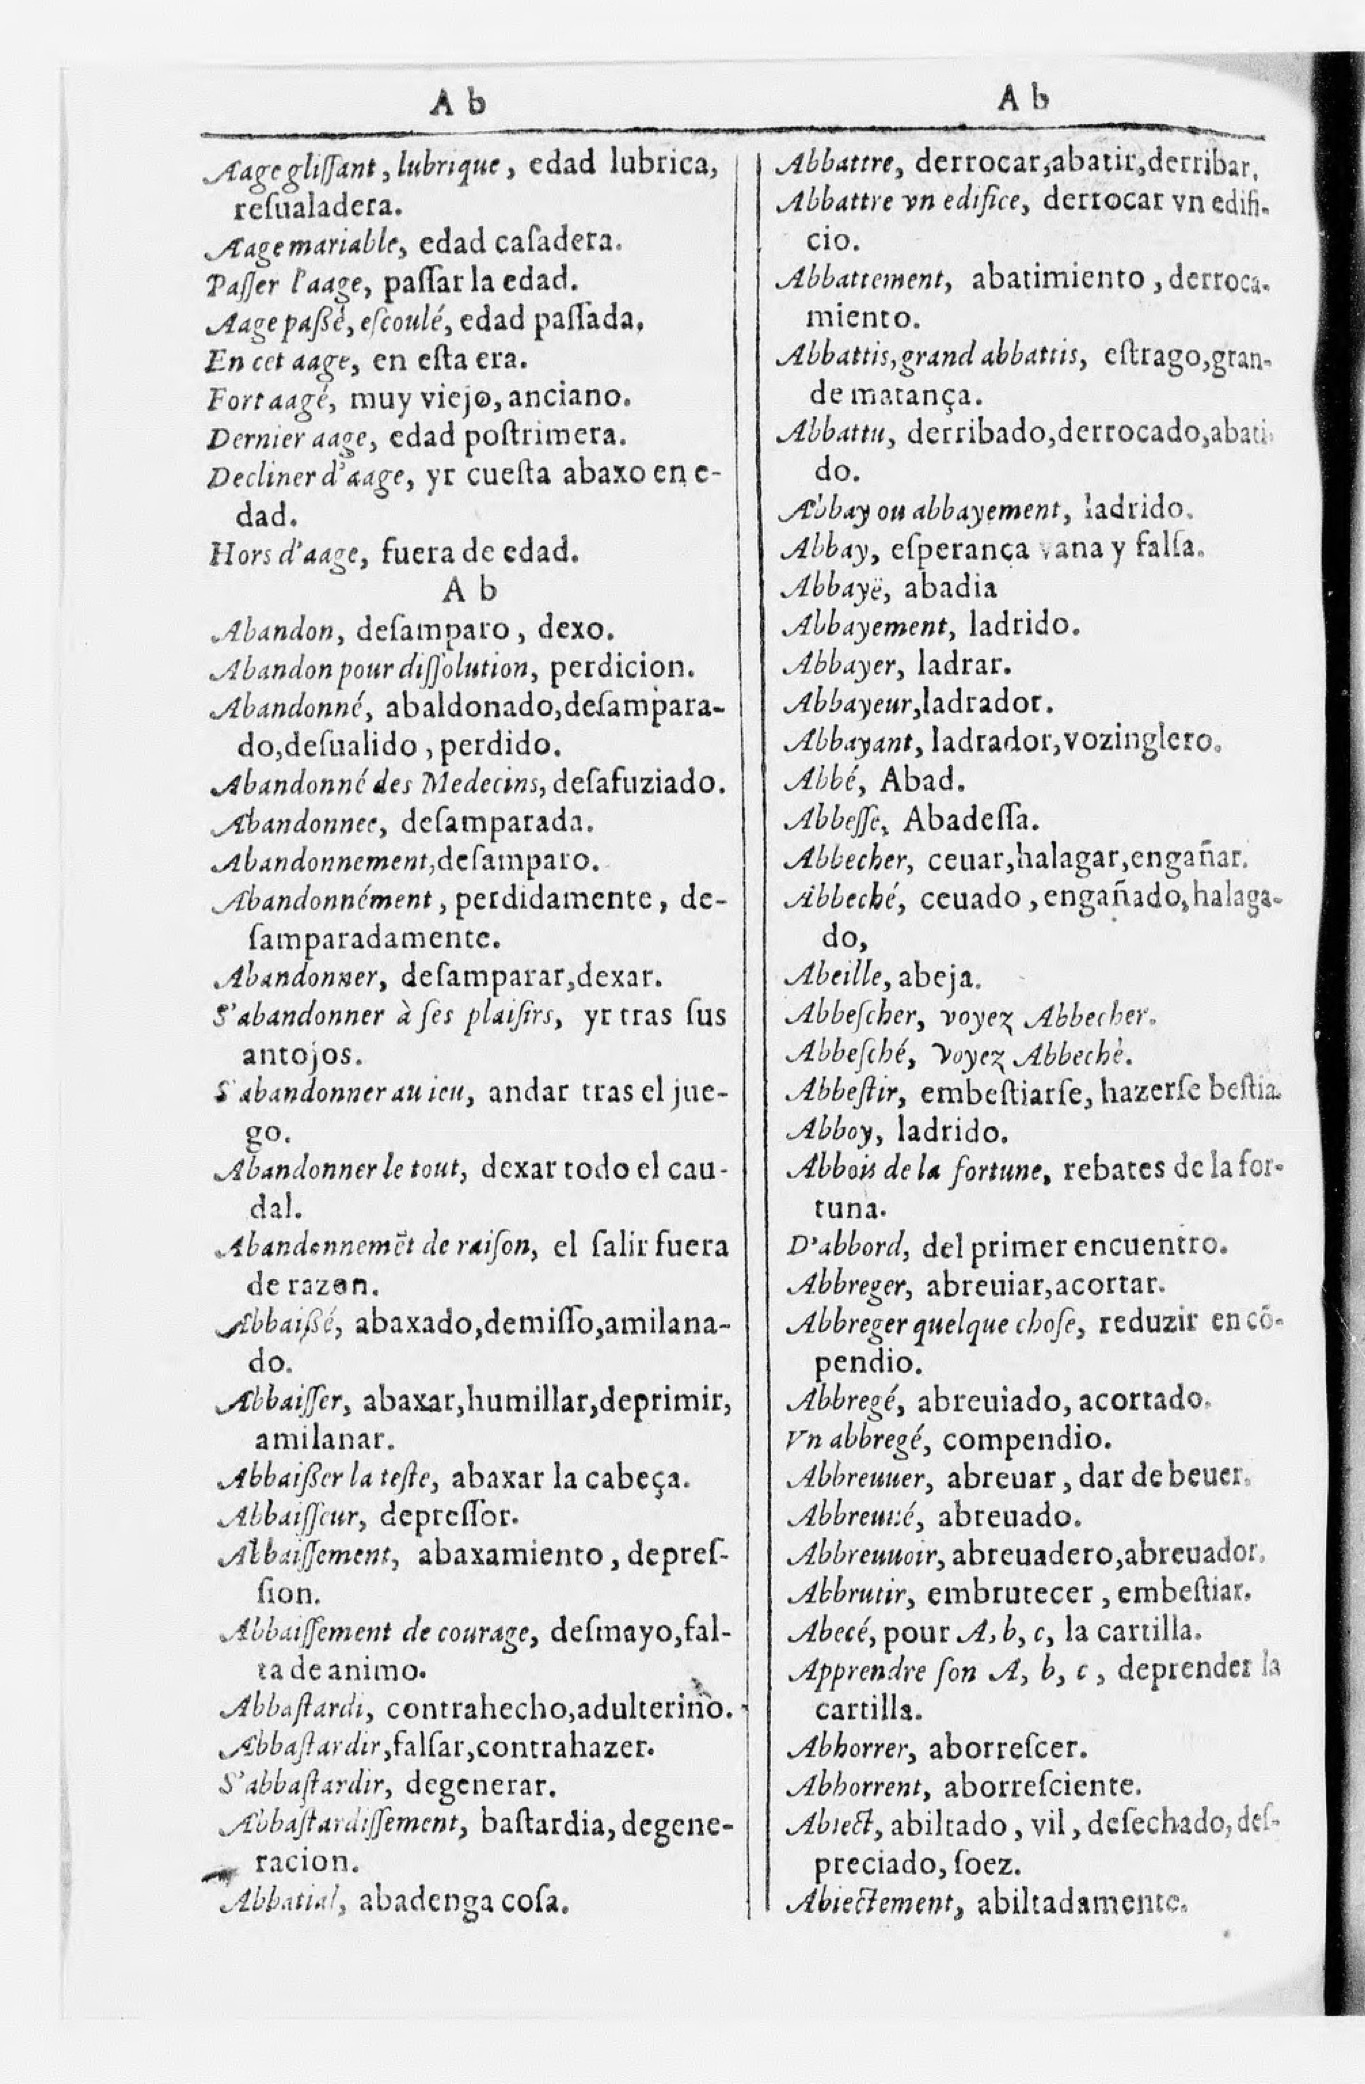 A b
Aage gliſſant, lubrique, edad lubrica,
reſualadera.
Aage mariable, edad caſadera.
Paſſer l'aage, paſſar la edad.
Aage paßé, eſcoulé, edad paſſada,
En cet aage, en eſta era.
Fort aagé, muy viejo, anciano.
Dernier aage, edad poſtrimera.
Decliner d'aage, yr cueſta abaxo en e-
dad.
Hors d'aage, fuera de edad.
A b
Abandon, deſamparo, dexo.
Abandon pour diſſolution, perdicion.
Abandonné, abaldonado, deſampara-
do, deſualido, perdido.
Abandonné des Medecins, deſafuziado.
Abandonnee, deſamparada.
Abandonnement, deſamparo.
Abandonnément, perdidamente, de-
ſamparadamente.
Abandonner, deſamparar, dexar.
S'abandonner à ſes plaiſirs, yr tras ſus
antojos.
S'abandonner au ieu, andar tras el jue-
go.
Abandonner le tout, dexar todo el cau-
dal.
Abandonnemẽt de raiſon, el ſalir fuera
de razon.
Abbaißé, abaxado, demiſſo, amilana-
do.
Abbaiſſer, abaxar, humillar, deprimir,
amilanar.
Abbaißer la teſte, abaxar la cabeça.
Abbaiſſeur, depreſſor.
Abbaiſſement, abaxamiento, depreſ-
ſion.
Abbaiſſement de courage, deſmayo, fal-
ta de animo.
Abbaſtardi, contrahecho, adulterino.
Abbaſtardir, falſar, contrahazer.
S'abbaſtardir, degenerar.
Abbaſtardiſſement, baſtardia, degene-
racion.
Abbatial, abadenga coſa.
A b
Abbattre, derrocar, abatir, derribar.
Abbattre vn edifice, derrocar vn edifi-
cio.
Abbattement, abatimiento, derroca-
miento.
Abbattis, grand abbattis, eſtrago, gran-
de matança.
Abbattu, derribado, derrocado, abati-
do.
Abbay ou abbayement, ladrido.
Abbay, eſperança vana y falſa.
Abbayë, abadia
Abbayement, ladrido.
Abbayer, ladrar.
Abbayeur, ladrador.
Abbayant, ladrador, vozinglero.
Abbé, Abad.
Abbeſſe, Abadeſſa.
Abbecher, ceuar, halagar, engañar.
Abbeché, ceuado, engañado, halaga-
do,
Abeille, abeja.
Abbeſcher, voyez Abbecher.
Abbeſché, voyez Abbechè.
Abbeſtir, embeſtiarſe, hazerſe beſtia.
Abboy, ladrido.
Abbois de la fortune, rebates de la for-
tuna.
D'abbord, del primer encuentro.
Abbreger, abreuiar, acortar.
Abbreger quelque choſe, reduzir en cõ-
pendio.
Abbregé, abreuiado, acortado.
Vn abbregé, compendio.
Abbreuuer, abreuar, dar de beuer.
Abbreuué, abreuado.
Abbreuuoir, abreuadero, abreuador.
Abbrutir, embrutecer, embeſtiar.
Abecé, pour A, b, c, la cartilla.
Apprendre ſon A, b, c, deprender la
cartilla.
Abhorrer, aborreſcer.
Abhorrent, aborreſciente.
Abiect, abiltado, vil, deſechado, deſ-
preciado, ſoez.
Abiectement, abiltadamente.